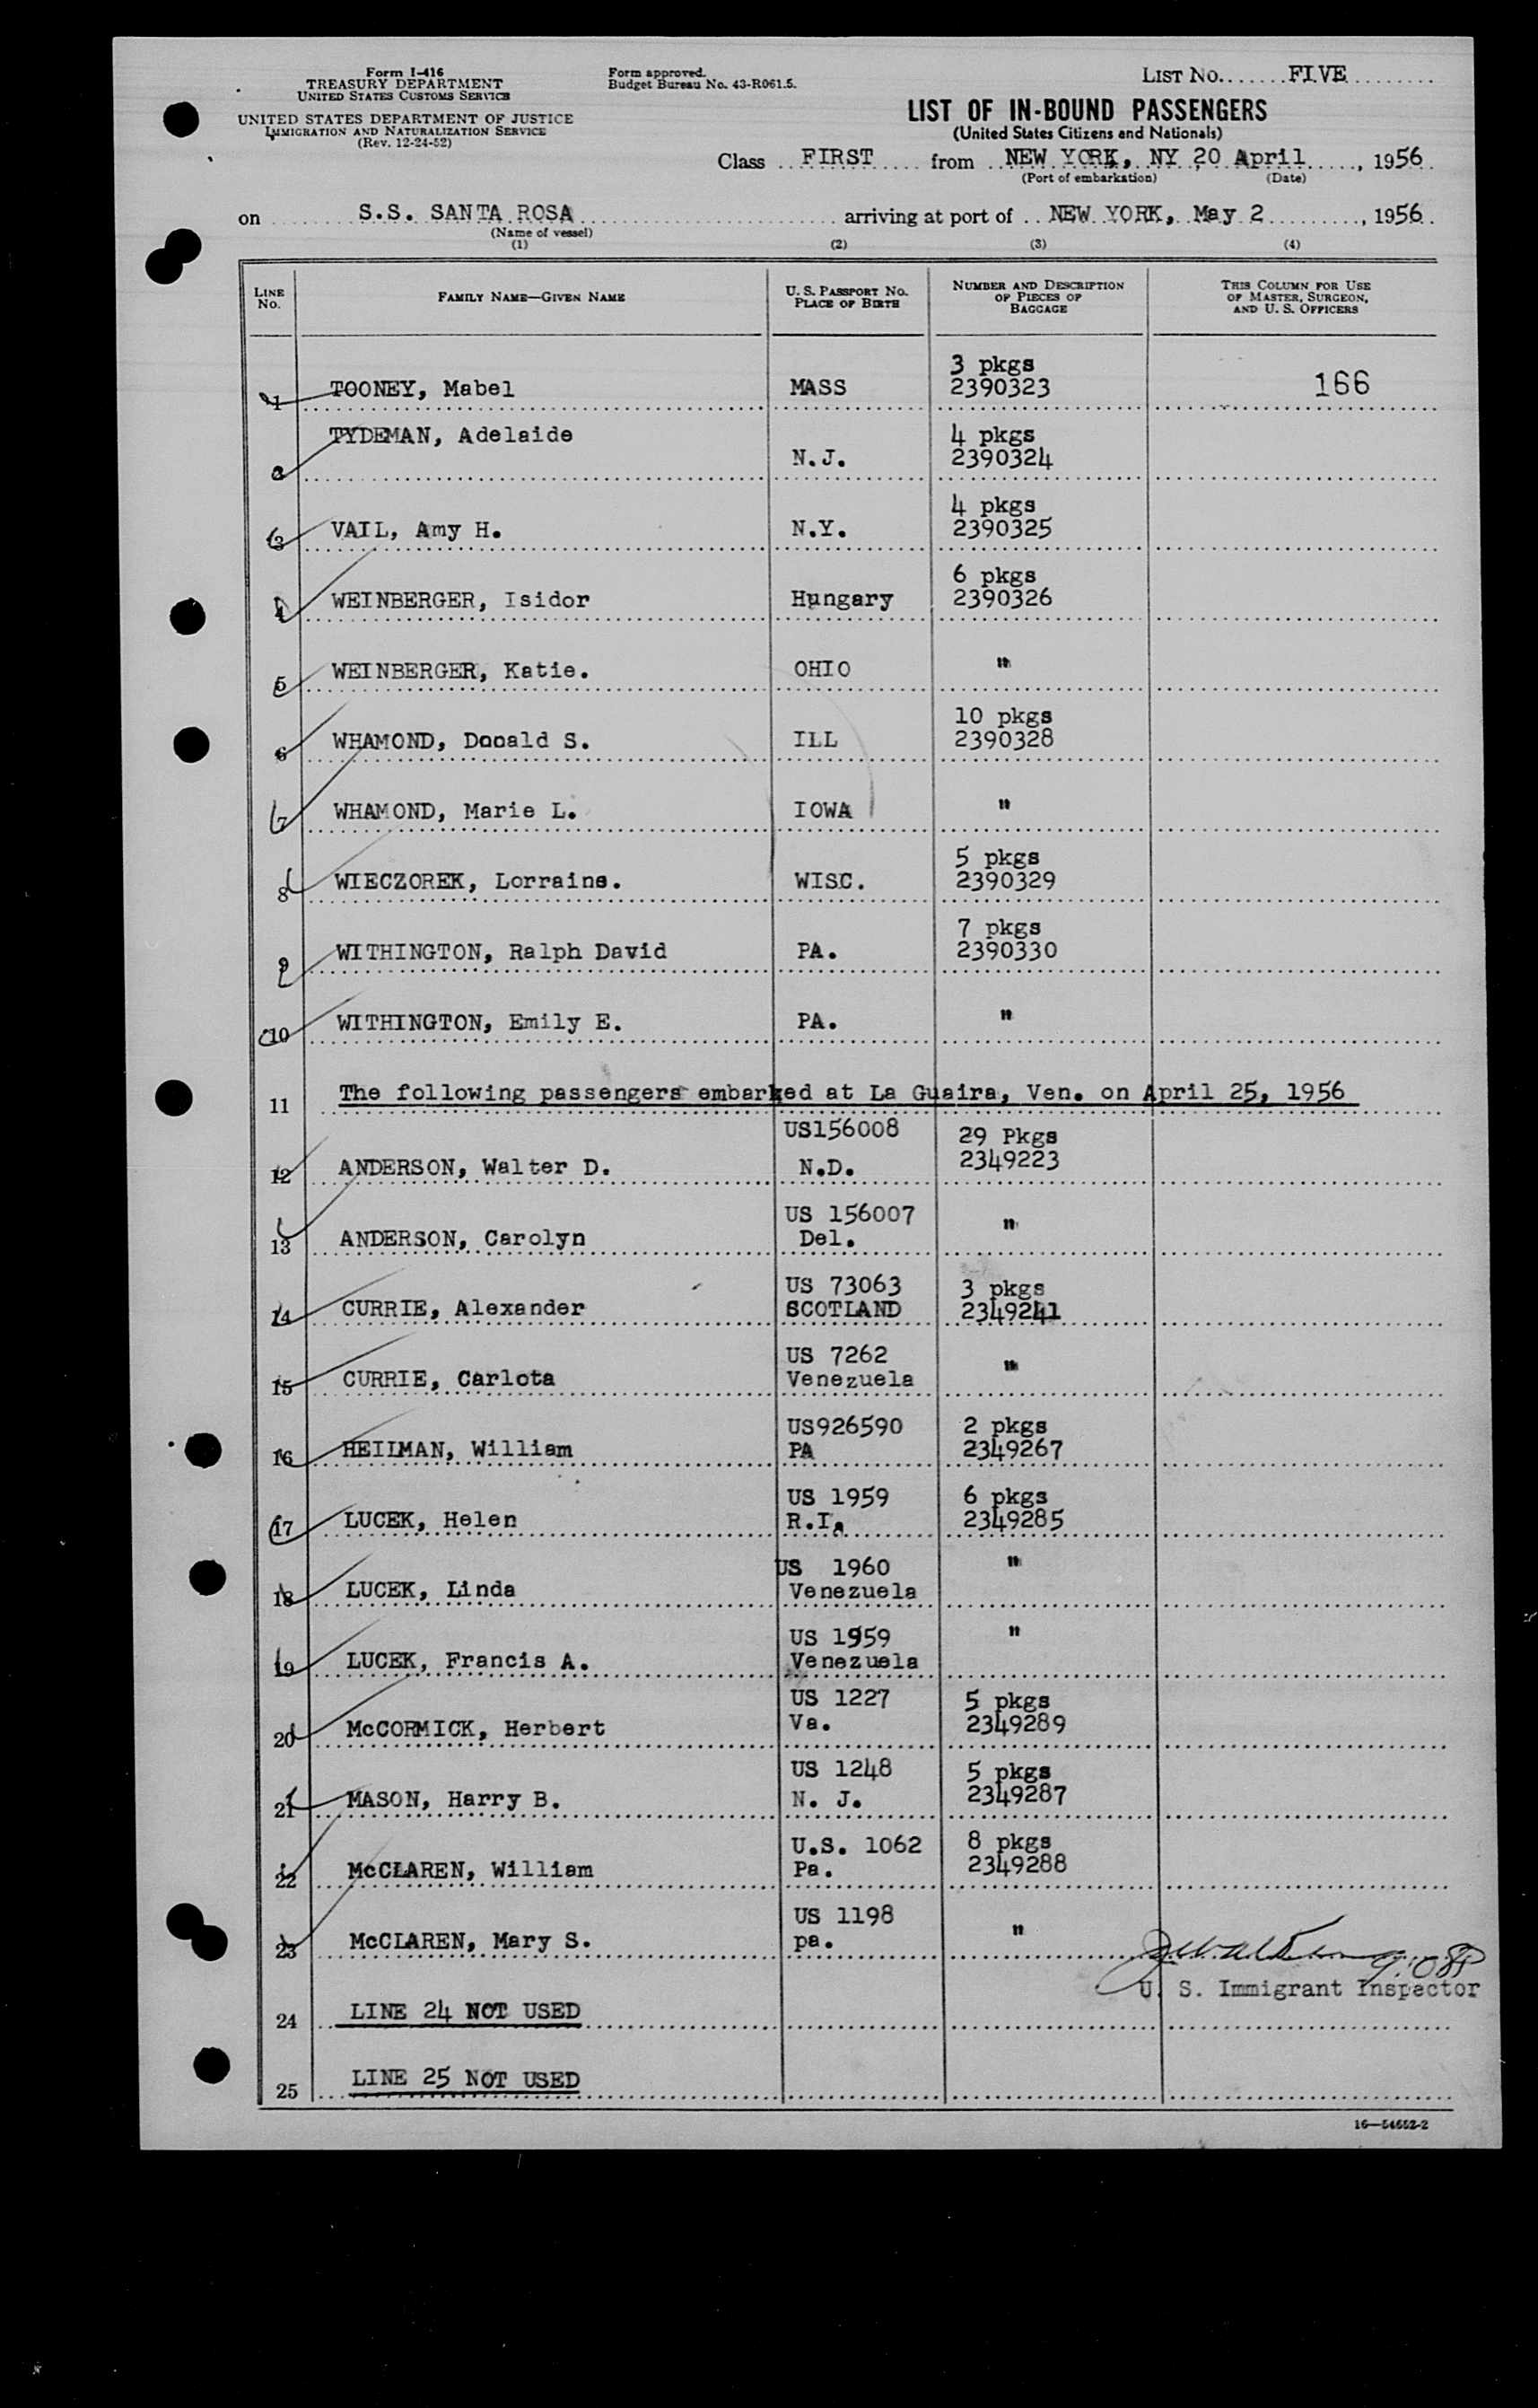 Form I-416
TREASURY DEPARTMENT
UNITED STATES CUSTOMS SERVICE
UNITED STATES DEPARTMENT OF JUSTICE
IMMIGRATION AND NATURALIZATION SERVICE
(Rev. 12-24-52)
Form approved.
Budget Bureau No. 43-R061.5.
LIST NO. FIVE
LIST OF IN-BOUND PASSENGERS
(United States Citizens and Nationals)
Class FIRST from NEW YORK, NY 20 April, 1956
(Port of embarkation) (Date)
on S.S. SANTA ROSA arriving at port of NEW YORK, May 2, 1956
(Name of vessel)
(1) (2) (3) (4)
LINE NO. FAMILY NAME—GIVEN NAME U. S. PASSPORT NO. PLACE OF BIRTH NUMBER AND DESCRIPTION OF PIECES OF BAGGAGE THIS COLUMN FOR USE OF MASTER, SURGEON, AND U. S. OFFICERS
3 pkgs
1 TOONEY, Mabel MASS 2390323 166
TYDEMAN, Adelaide 4 pkgs
2 N.J. 2390324
4 pkgs
3 VAIL, Amy H. N.Y. 2390325
6 pkgs
4 WEINBERGER, Isidor Hungary 2390326
5 WEINBERGER, Katie. OHIO "
10 pkgs
6 WHAMOND, Donald S. ILL 2390328
7 WHAMOND, Marie L. IOWA "
5 pkgs
8 WIECZOREK, Lorraine. WISC. 2390329
7 pkgs
9 WITHINGTON, Ralph David PA. 2390330
10 WITHINGTON, Emily E. PA. "
11 The following passengers embarked at La Guaira, Ven. on April 25, 1956
US156008 29 Pkgs
12 ANDERSON, Walter D. N.D. 2349223
US 156007 "
13 ANDERSON, Carolyn Del.
US 73063 3 pkgs
14 CURRIE, Alexander SCOTLAND 2349241
US 7262 "
15 CURRIE, Carlota Venezuela
US926590 2 pkgs
16 HEILMAN, William PA 2349267
US 1959 6 pkgs
17 LUCEK, Helen R.I. 2349285
US 1960 "
18 LUCEK, Linda Venezuela
US 1959 "
19 LUCEK, Francis A. Venezuela
US 1227 5 pkgs
20 McCORMICK, Herbert Va. 2349289
US 1248 5 pkgs
21 MASON, Harry B. N. J. 2349287
U.S. 1062 8 pkgs
22 McCLAREN, William Pa. 2349288
US 1198 "
23 McCLAREN, Mary S. pa.
U. S. Immigrant Inspector
24 LINE 24 NOT USED
25 LINE 25 NOT USED
16—54652-2